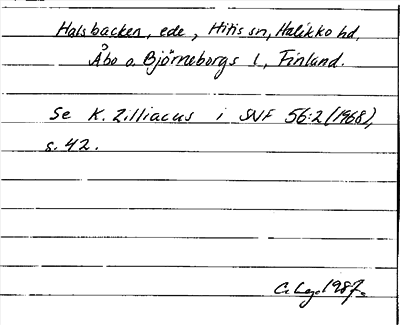 Halsbacken, ede, Hitis sn, Halikko hd,
Åbo o. Björneborgs l, Finland.
Se K. Zilliacus i SNF 56:2 (1968),
s. 42.
1987.